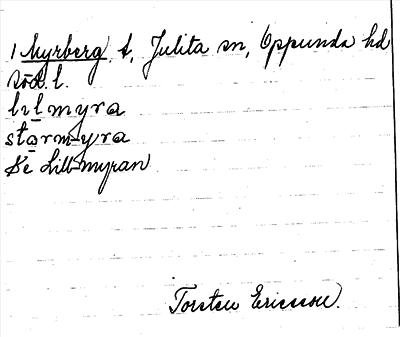 1 Myrberg t, Julita sn, Oppunda hd
Söd. l.
lilmyra
stormyra
Se Lillmyran
Torsten Ericsson.